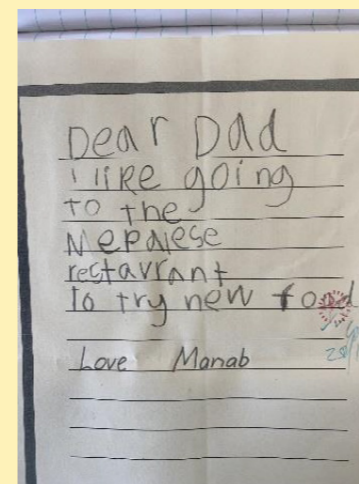 Dear Dad
I like going
to the
Nepalese
restaurant
To try new food
Love Manab